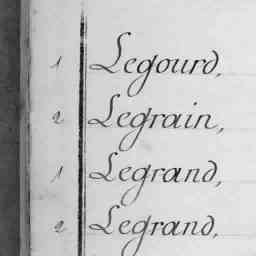 1 Legourd,
2 Legrain,
1 Legrand,
2 Legrand,